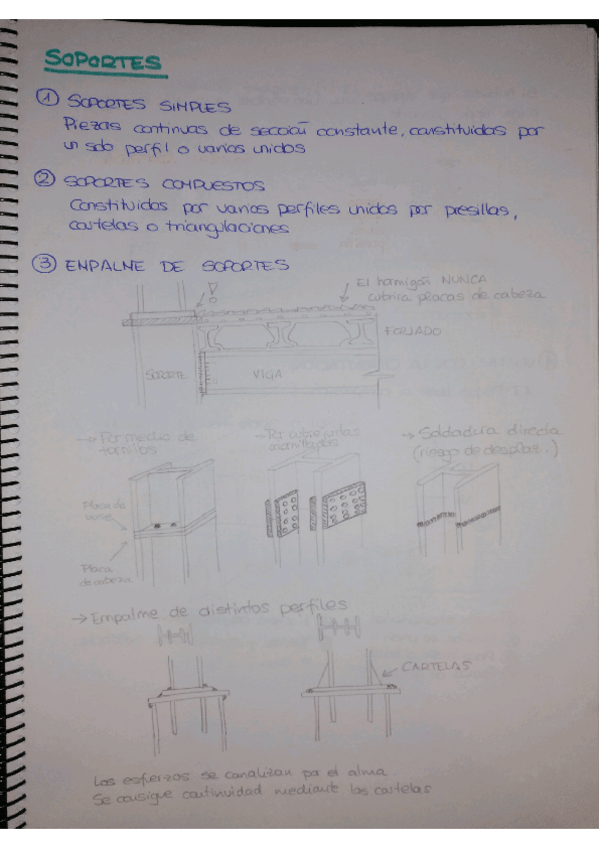 SOPORTES
① SOPORTES SIMPLES
Piezas continuas de sección constante, constituidos por
un solo perfil o varios unidos
② SOPORTES COMPUESTOS
Constituidos por varios perfiles unidos por presillas,
cartelas o triangulaciones
③ EMPALME DE SOPORTES
El hormigón NUNCA
cubrira placas de cabeza
FORJADO
SOPORTE
VIGA
→ Por medio de
tornillos
→ Por cubrejuntas
atornillados
→ Soldadura directa
(riesgo de desplaz.)
Placa de
Placa
de cabeza
→ Empalme de distintos perfiles
CARTELAS
Los esfuerzos se canalizan por el alma
Se consigue continuidad mediante las cartelas